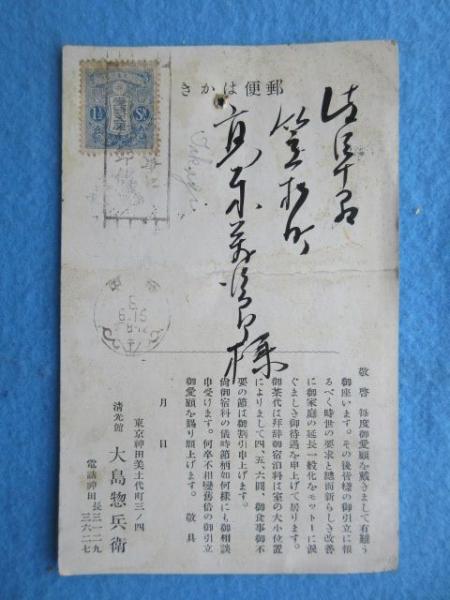 郵便はかき
1½ Sn
岐阜縣
笠松町
様
6
6.15
敬啓 毎度御愛顧を戴きまして有難う
御座います。その後皆様の御引立に報
るべく時世の要求と鑑而新らしき改善
に御家庭の延長一般化をモットーに涙
ぐましき御待遇を申上げて居ります。
御茶代は拜辞御宿泊料は室の大小位置
によりまして四、五、六圓、御食事御不
要の節は御割引申上げます。
尚御宿料の儀時節柄如何樣にも御相談
申受けます。何卒不相變舊倍の御引立
御愛顧を賜り願上げます。 敬具
月 日
東京神田美土代町三ノ四
清光館 大島惣兵衛
電話神田 長三一二九
三六二七